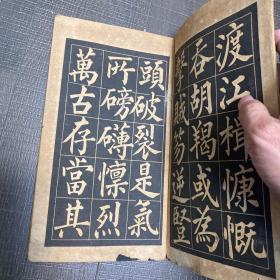 渡江楫慷慨
吞胡羯或為
擊賊笏逆豎
頭破裂是氣
所磅礴懍烈
萬古存當其